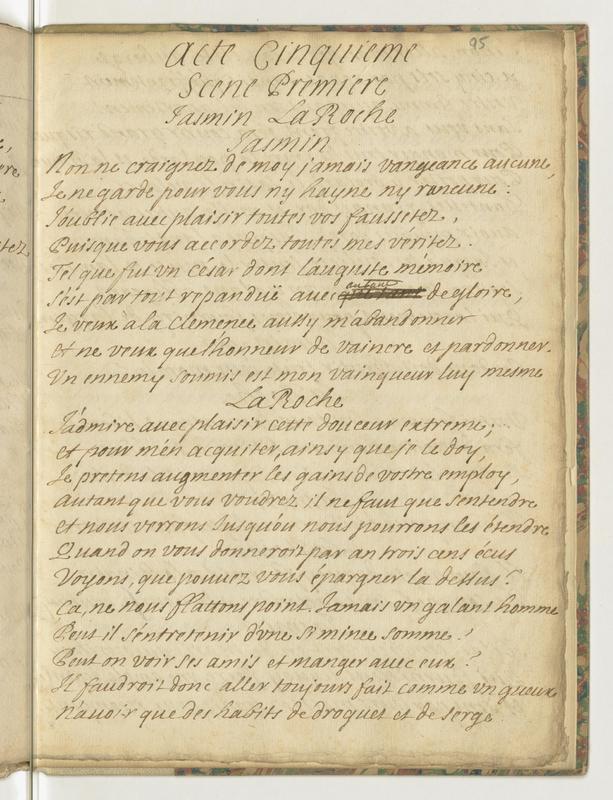 95
Acte Cinquieme
Scene Premiere
Jasmin LaRoche
Jasmin
Non ne craignez de moy jamais vangeance aucune,
Je ne garde pour vous ny hayne ny rancune :
J'oublie avec plaisir toutes vos faussetez,
Puisque vous accordez toutes mes véritez.
Tel que fut vn césar dont l'auguste mémoire
s'est par tout repanduë avec autant de gloire,
Je veux à la clemence aussy m'abandonner
et ne veux que l'honneur de vaincre et pardonner.
Vn ennemy soumis est mon vainqueur luy mesme
LaRoche
J'admire avec plaisir cette douceur extreme;
et pour m'en acquiter, ainsy que je le doy,
Je pretens augmenter les gains de vostre employ,
autant que vous voudrez, il ne faut que s'entendre
et nous verrons Jusqu'ou nous pourrons les étendre
Quand on vous donneroit par an trois cens écus
Voyons, que pouvez vous épargner la dessus ?
Ca, ne nous flattons point. Jamais vn galant homme
Peut il s'entretenir d'vne si mince somme ?
Peut on voir ses amis et manger avec eux ?
Il faudroit donc aller toujours fait comme vn gueux
N'avoir que des habits de droguet et de serge